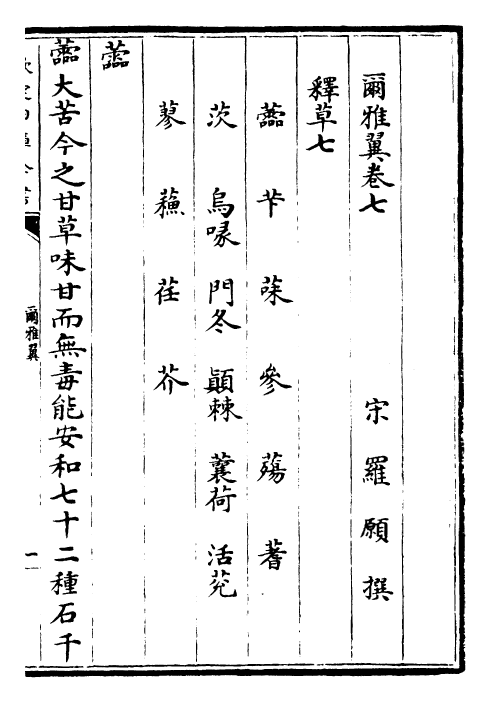 爾雅翼卷七
宋 羅願 撰
釋草七
蘦 芐 菋 參 薚 蓍
茨 烏喙 門冬 顚棘 蘘荷 活莌
蓼 蘓 荏 芥
蘦
蘦大苦今之甘草味甘而無毒能安和七十二種石千
爾雅翼
一